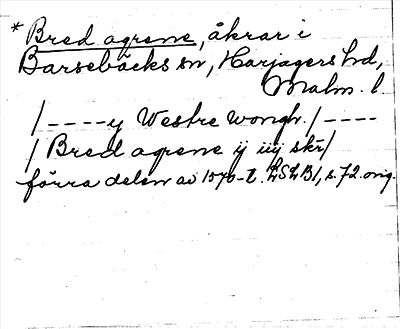 * Bred agrene, åkrar i
Barsebäcks sn, Harjagers hd,
Malm. l.
/----y Westre wongh. /----
/ Bred agrene ij iiij skr/
förra delen av 1570-t. LSLB1, s. 72. orig.